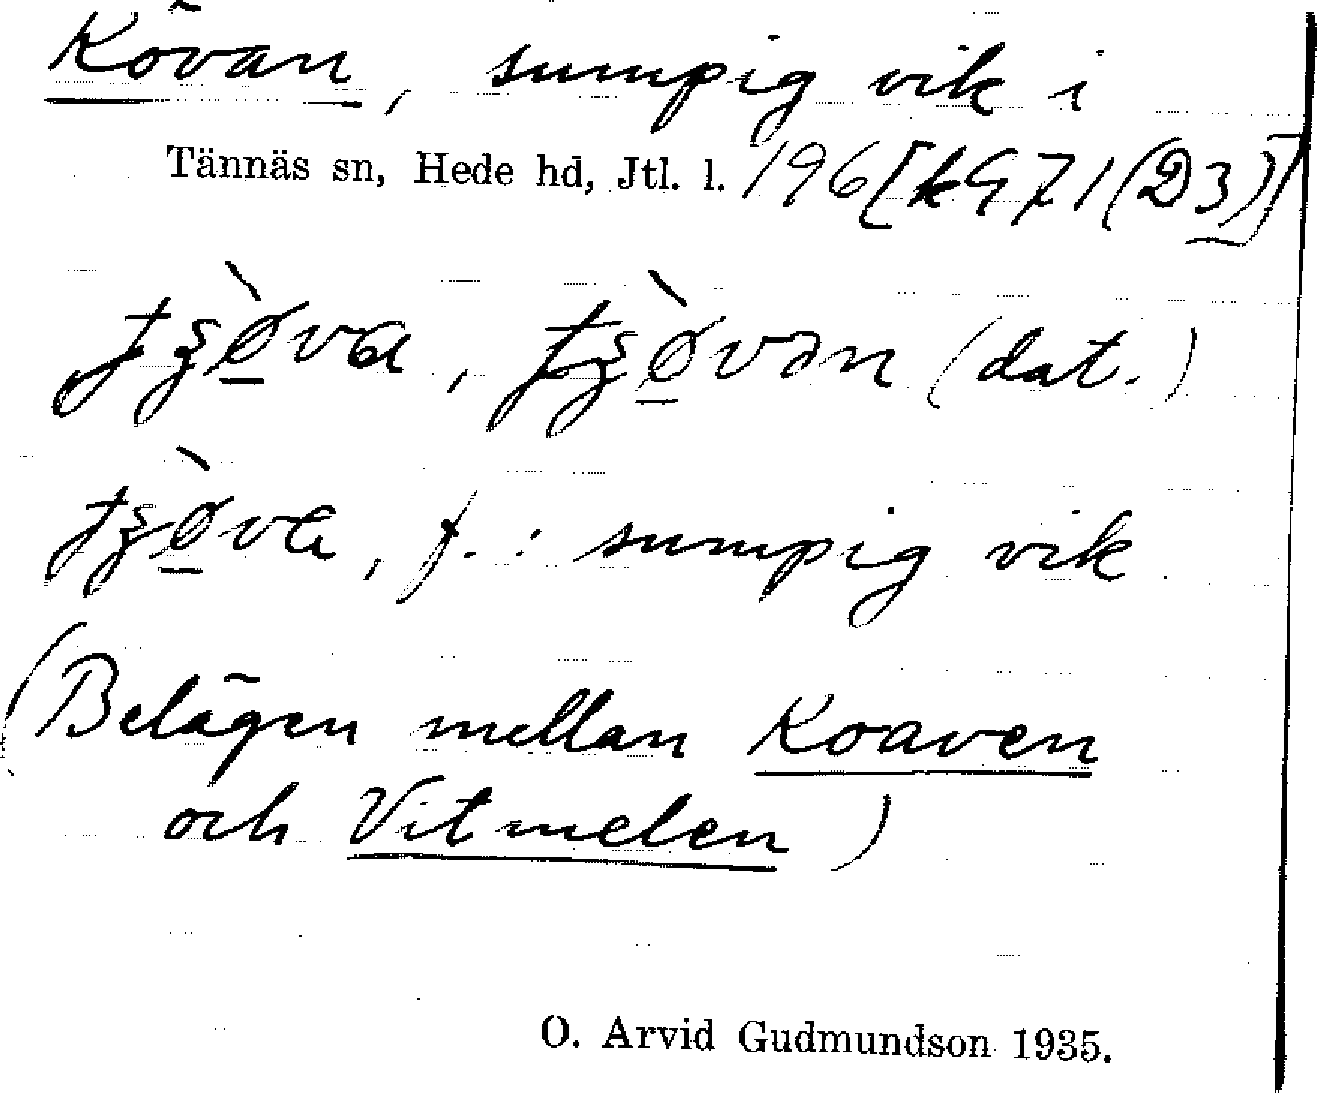 Kövan, sumpig vik i
Tännäs sn, Hede hd, Jtl. l. 196 [k971(D3)]
(dat.)
f. : sumpig vik
(Belägen mellan Koaven
och Vitmelen)
O. Arvid Gudmundson 1935.